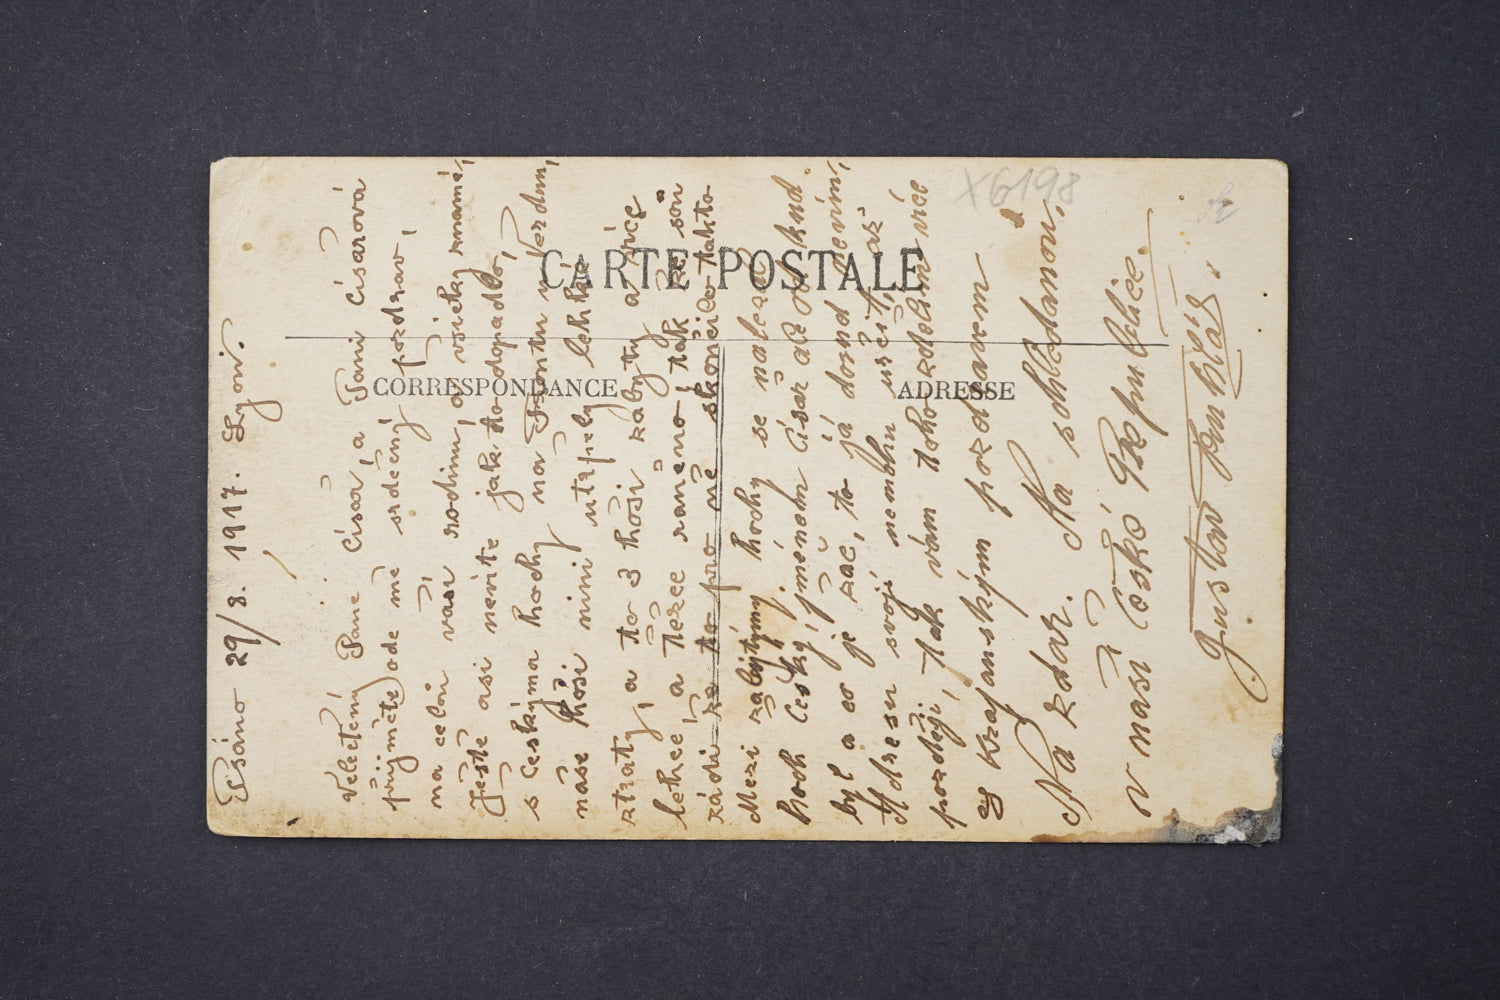 CARTE POSTALE
CORRESPONDANCE
ADRESSE
X6198
Psáno 29/8. 1917. Lyon.
Velectěný Pane Císař, a Paní Císařová
přijměte ode mě srdečný pozdrav,
na celou vaší rodinu, a všicky známé,
Ještě asi nevíte jak to dopadlo,
s českýma hochy na Frontu u Verdun,
náše hoši nini utrpěly lehké
ztraty, a to 3 hoši zabyty a více
lehce a těžce raněno, tak že sou
rádi že to pro ně skončilo takto
Mezi zabytýmy hochy se nalezá
hoch Český jménem Císař ale od kud
byl a co je zač, to já dorud nevím,
Adresu svojí nemohu určit, až
pozděj, tak vám toho zdelím více
s Krajanským pozdravem
Na zdar. Na schledanou,
v naší České Republice.
Gustav